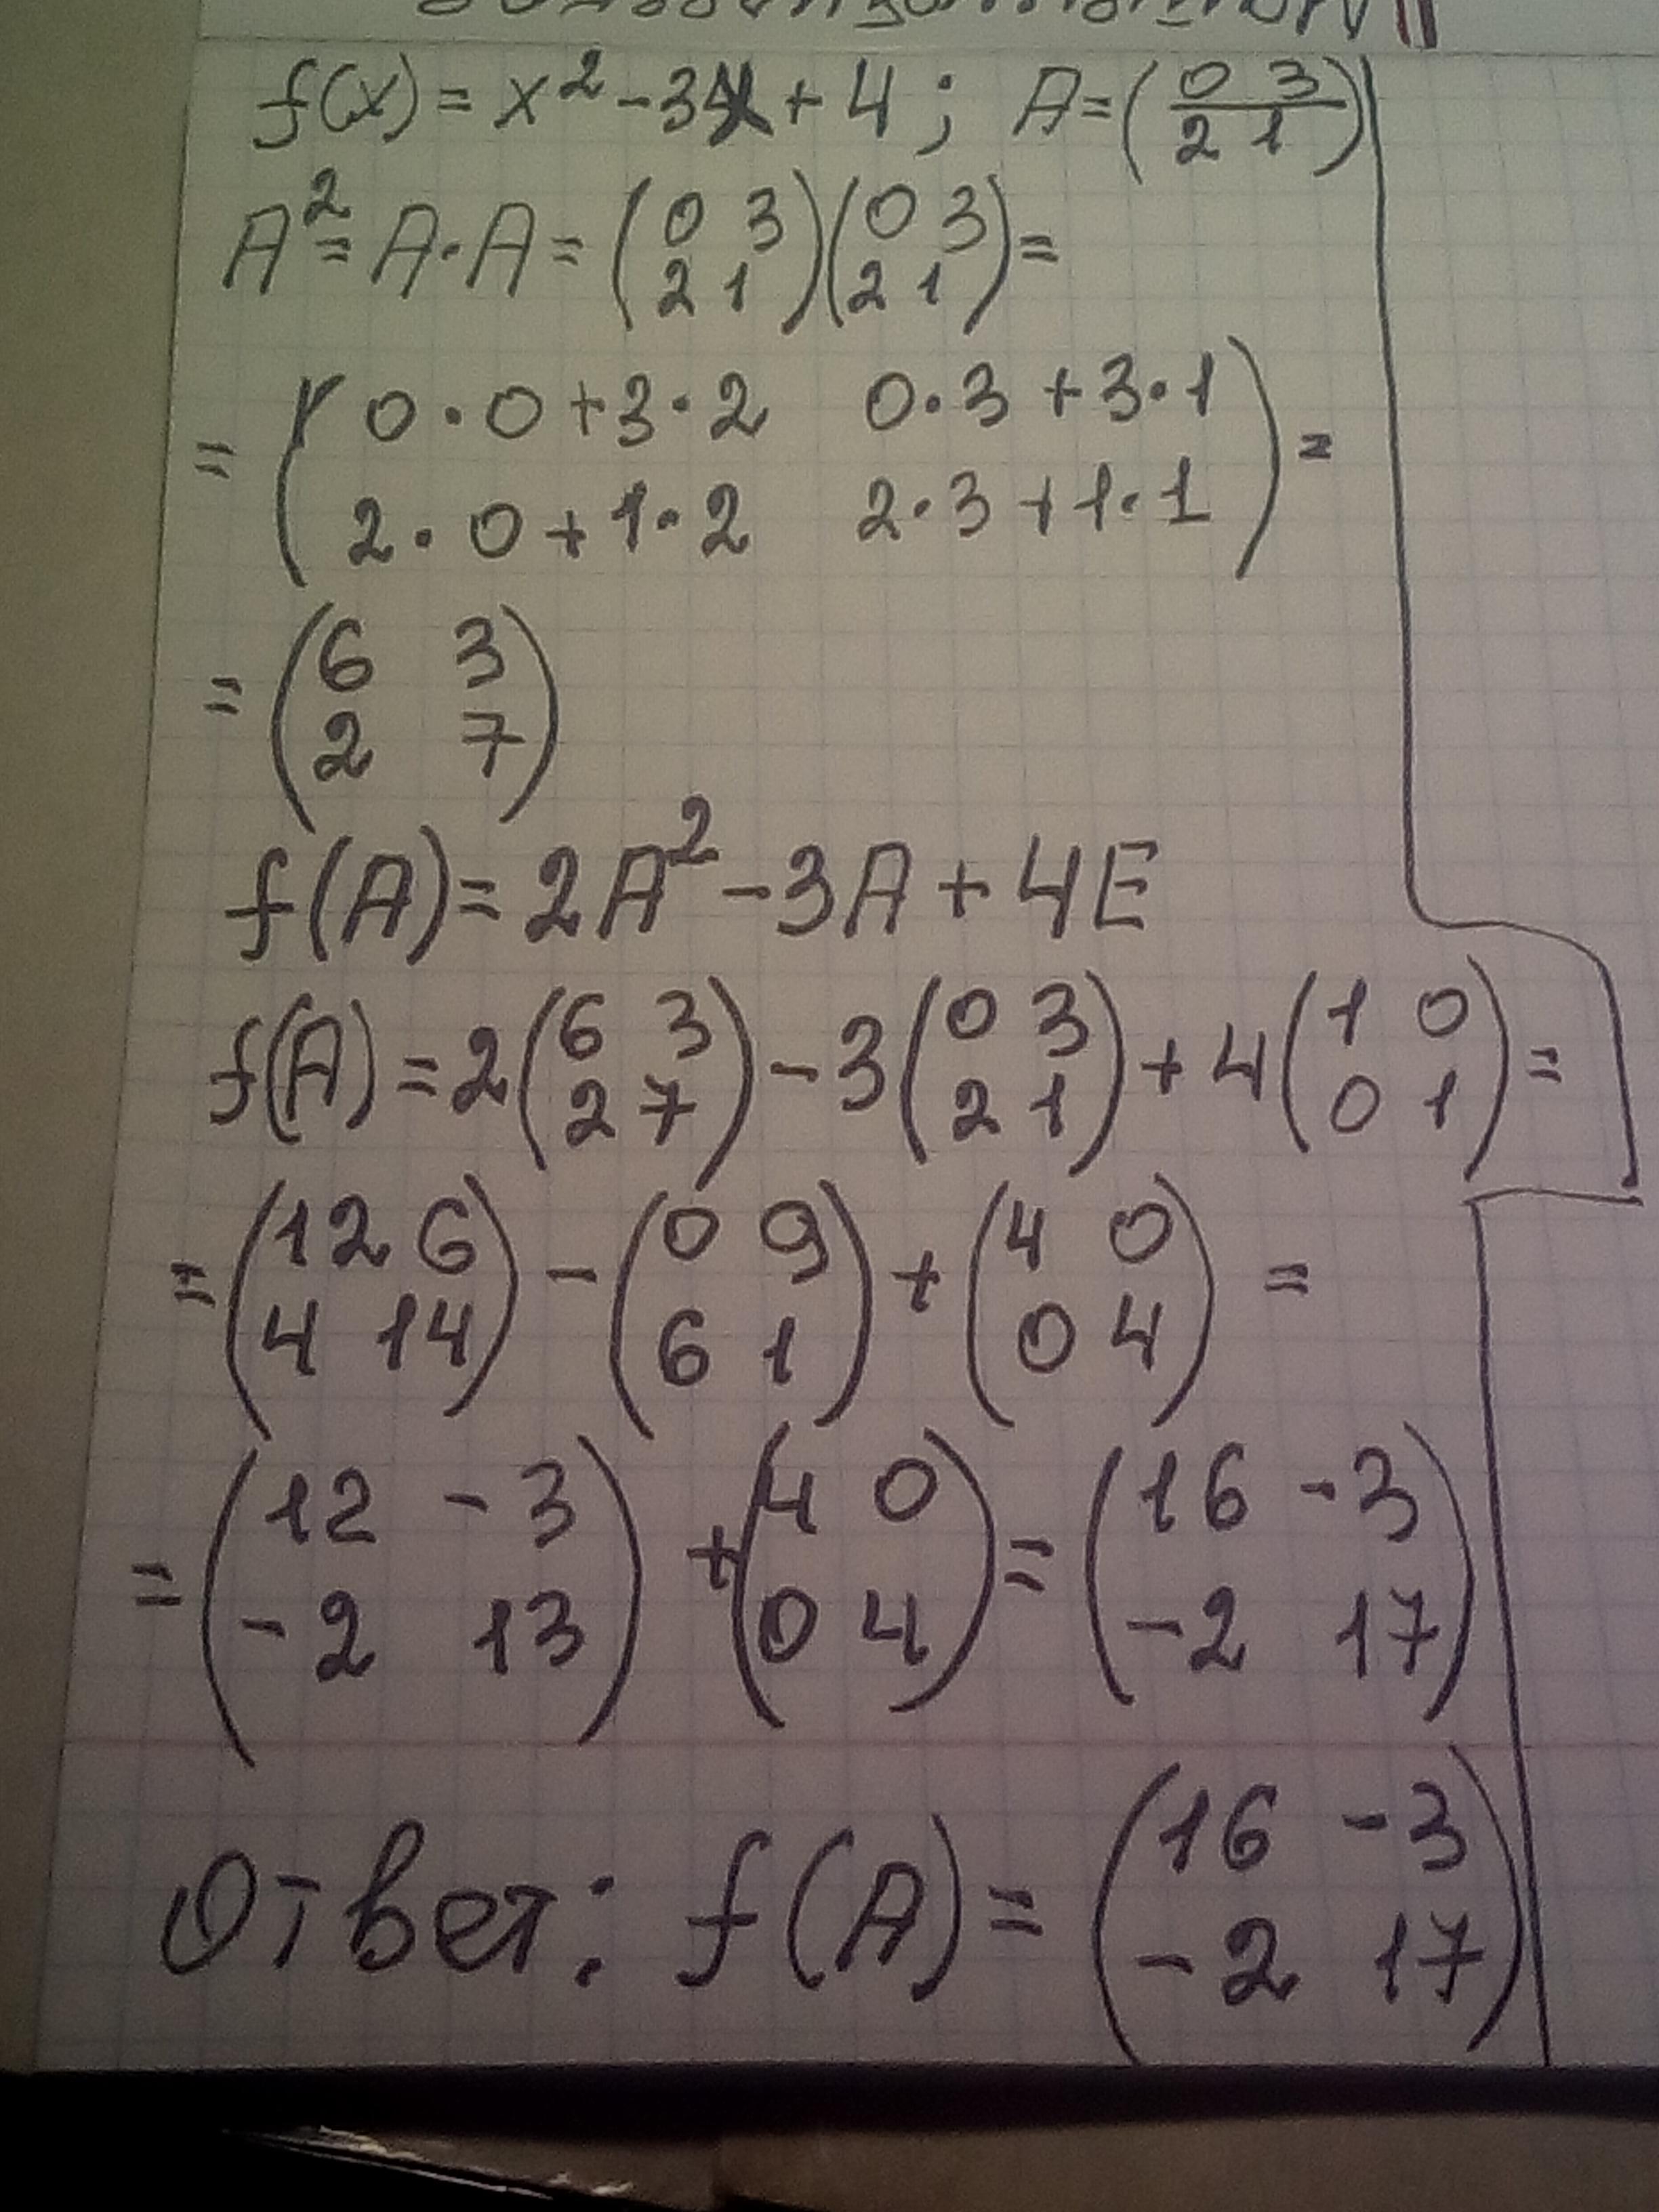 f(x) = x² - 3x + 4 ; A = (0 3 / 2 1)
A² = A · A = (0 3 / 2 1)(0 3 / 2 1) =
= (0·0+3·2 0·3+3·1 / 2·0+1·2 2·3+1·1) =
= (6 3 / 2 7)
f(A) = 2A² - 3A + 4E
f(A) = 2(6 3 / 2 7) - 3(0 3 / 2 1) + 4(1 0 / 0 1) =
= (12 6 / 4 14) - (0 9 / 6 1) + (4 0 / 0 4) =
= (12 -3 / -2 13) + (4 0 / 0 4) = (16 -3 / -2 17)
Ответ: f(A) = (16 -3 / -2 17)